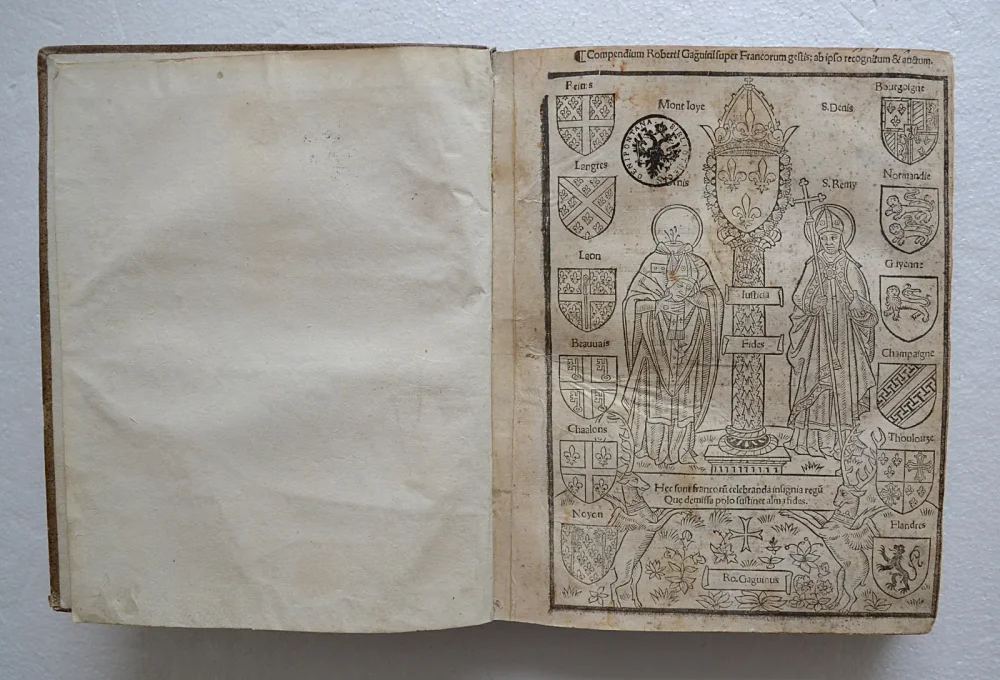 ¶ Compendium Roberti Gaguini super Francorum gestis: ab ipso recognitum & auctum.
Reims
Mont Ioye
S. Denis
Bourgoigne
Langres
S. Remy
Normandie
Laon
Guyenne
Iusticia
Fides
Beauuais
Champaigne
Chaalons
Thoulouze
Hec sunt francorū celebranda insignia regū
Que demissa polo sustinet alma fides.
Noyon
Flandres
Ro. Gaguinus